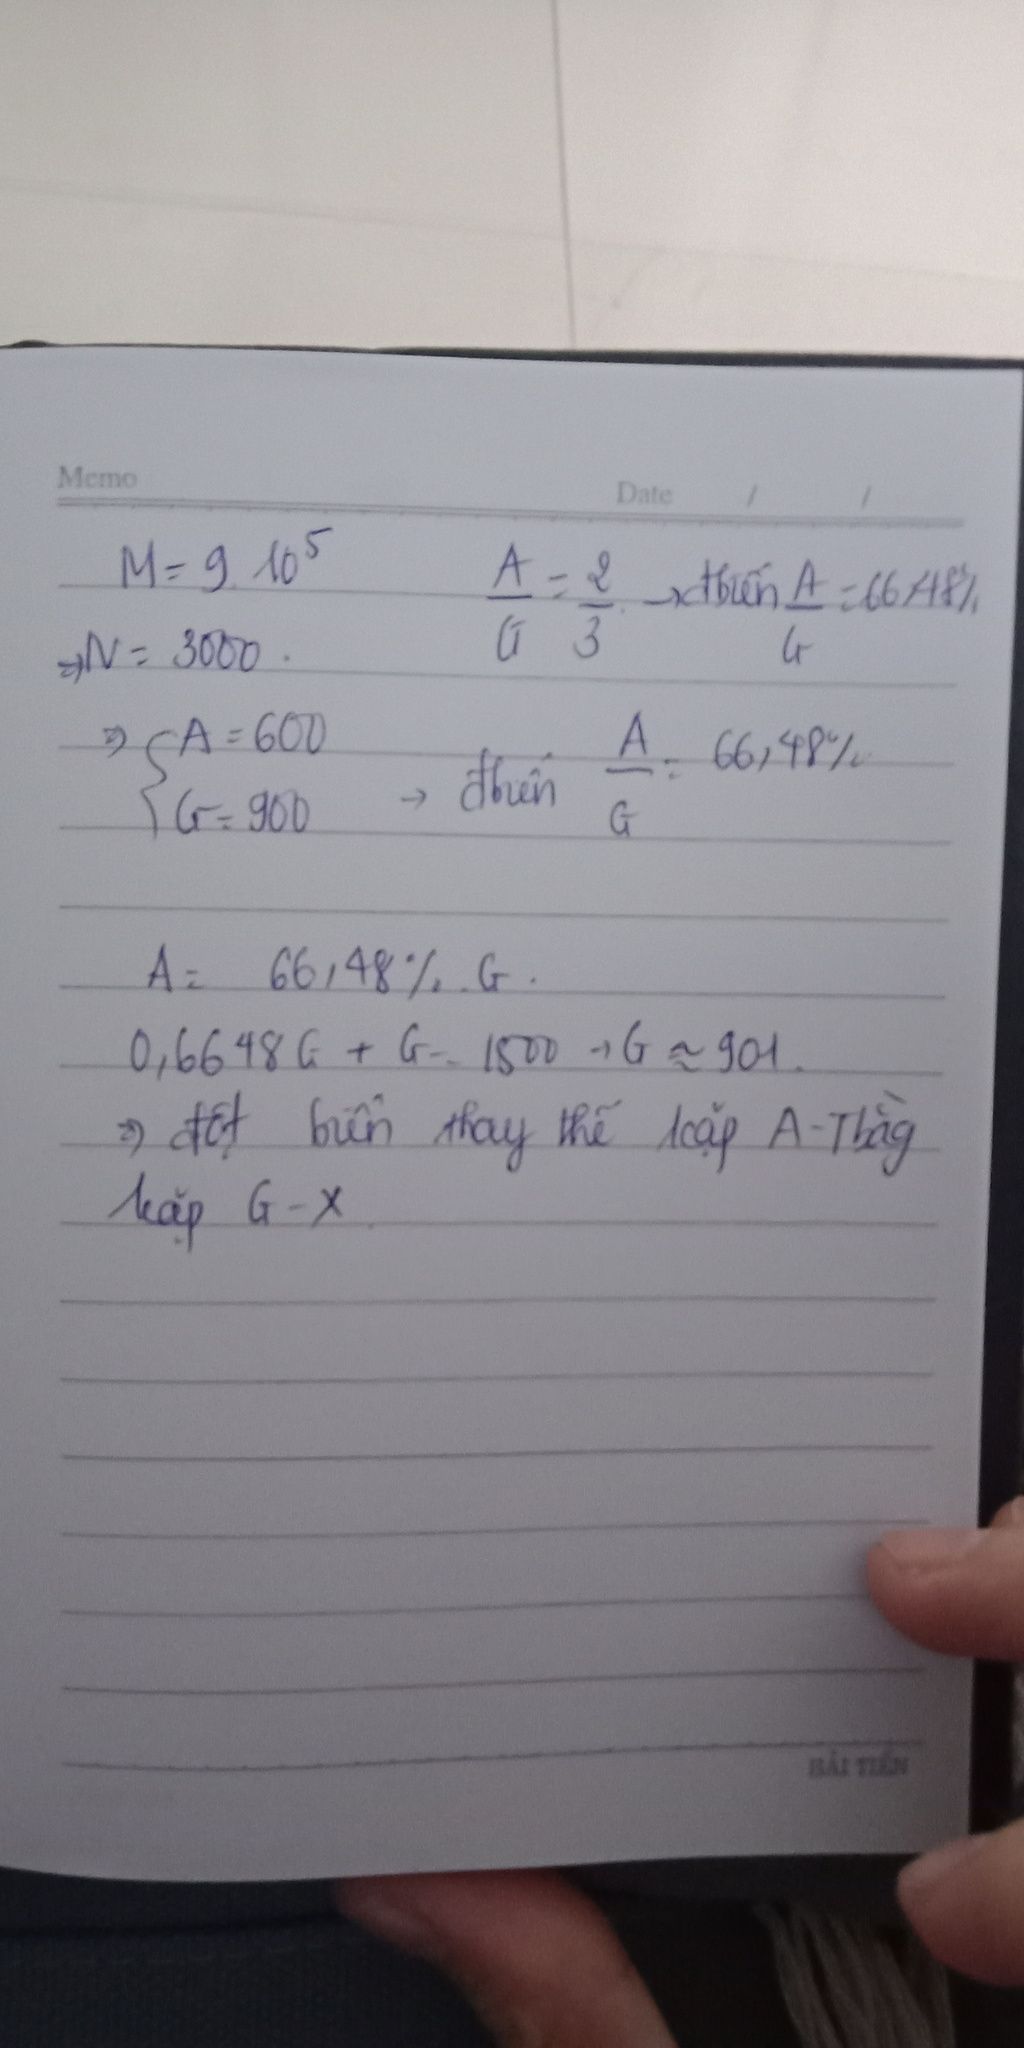 Memo
Date / /
M = 9.10^5
A/G = 2/3 → đbiến A/G = 66,48%
⇒ N = 3000.
⇒ { A = 600
G = 900 → đbiến A/G = 66,48%
A = 66,48%.G.
0,6648G + G = 1500 → G ≈ 901.
⇒ đột biến thay thế 1cặp A-Tbằg
1cặp G-X
HẢI TIẾN